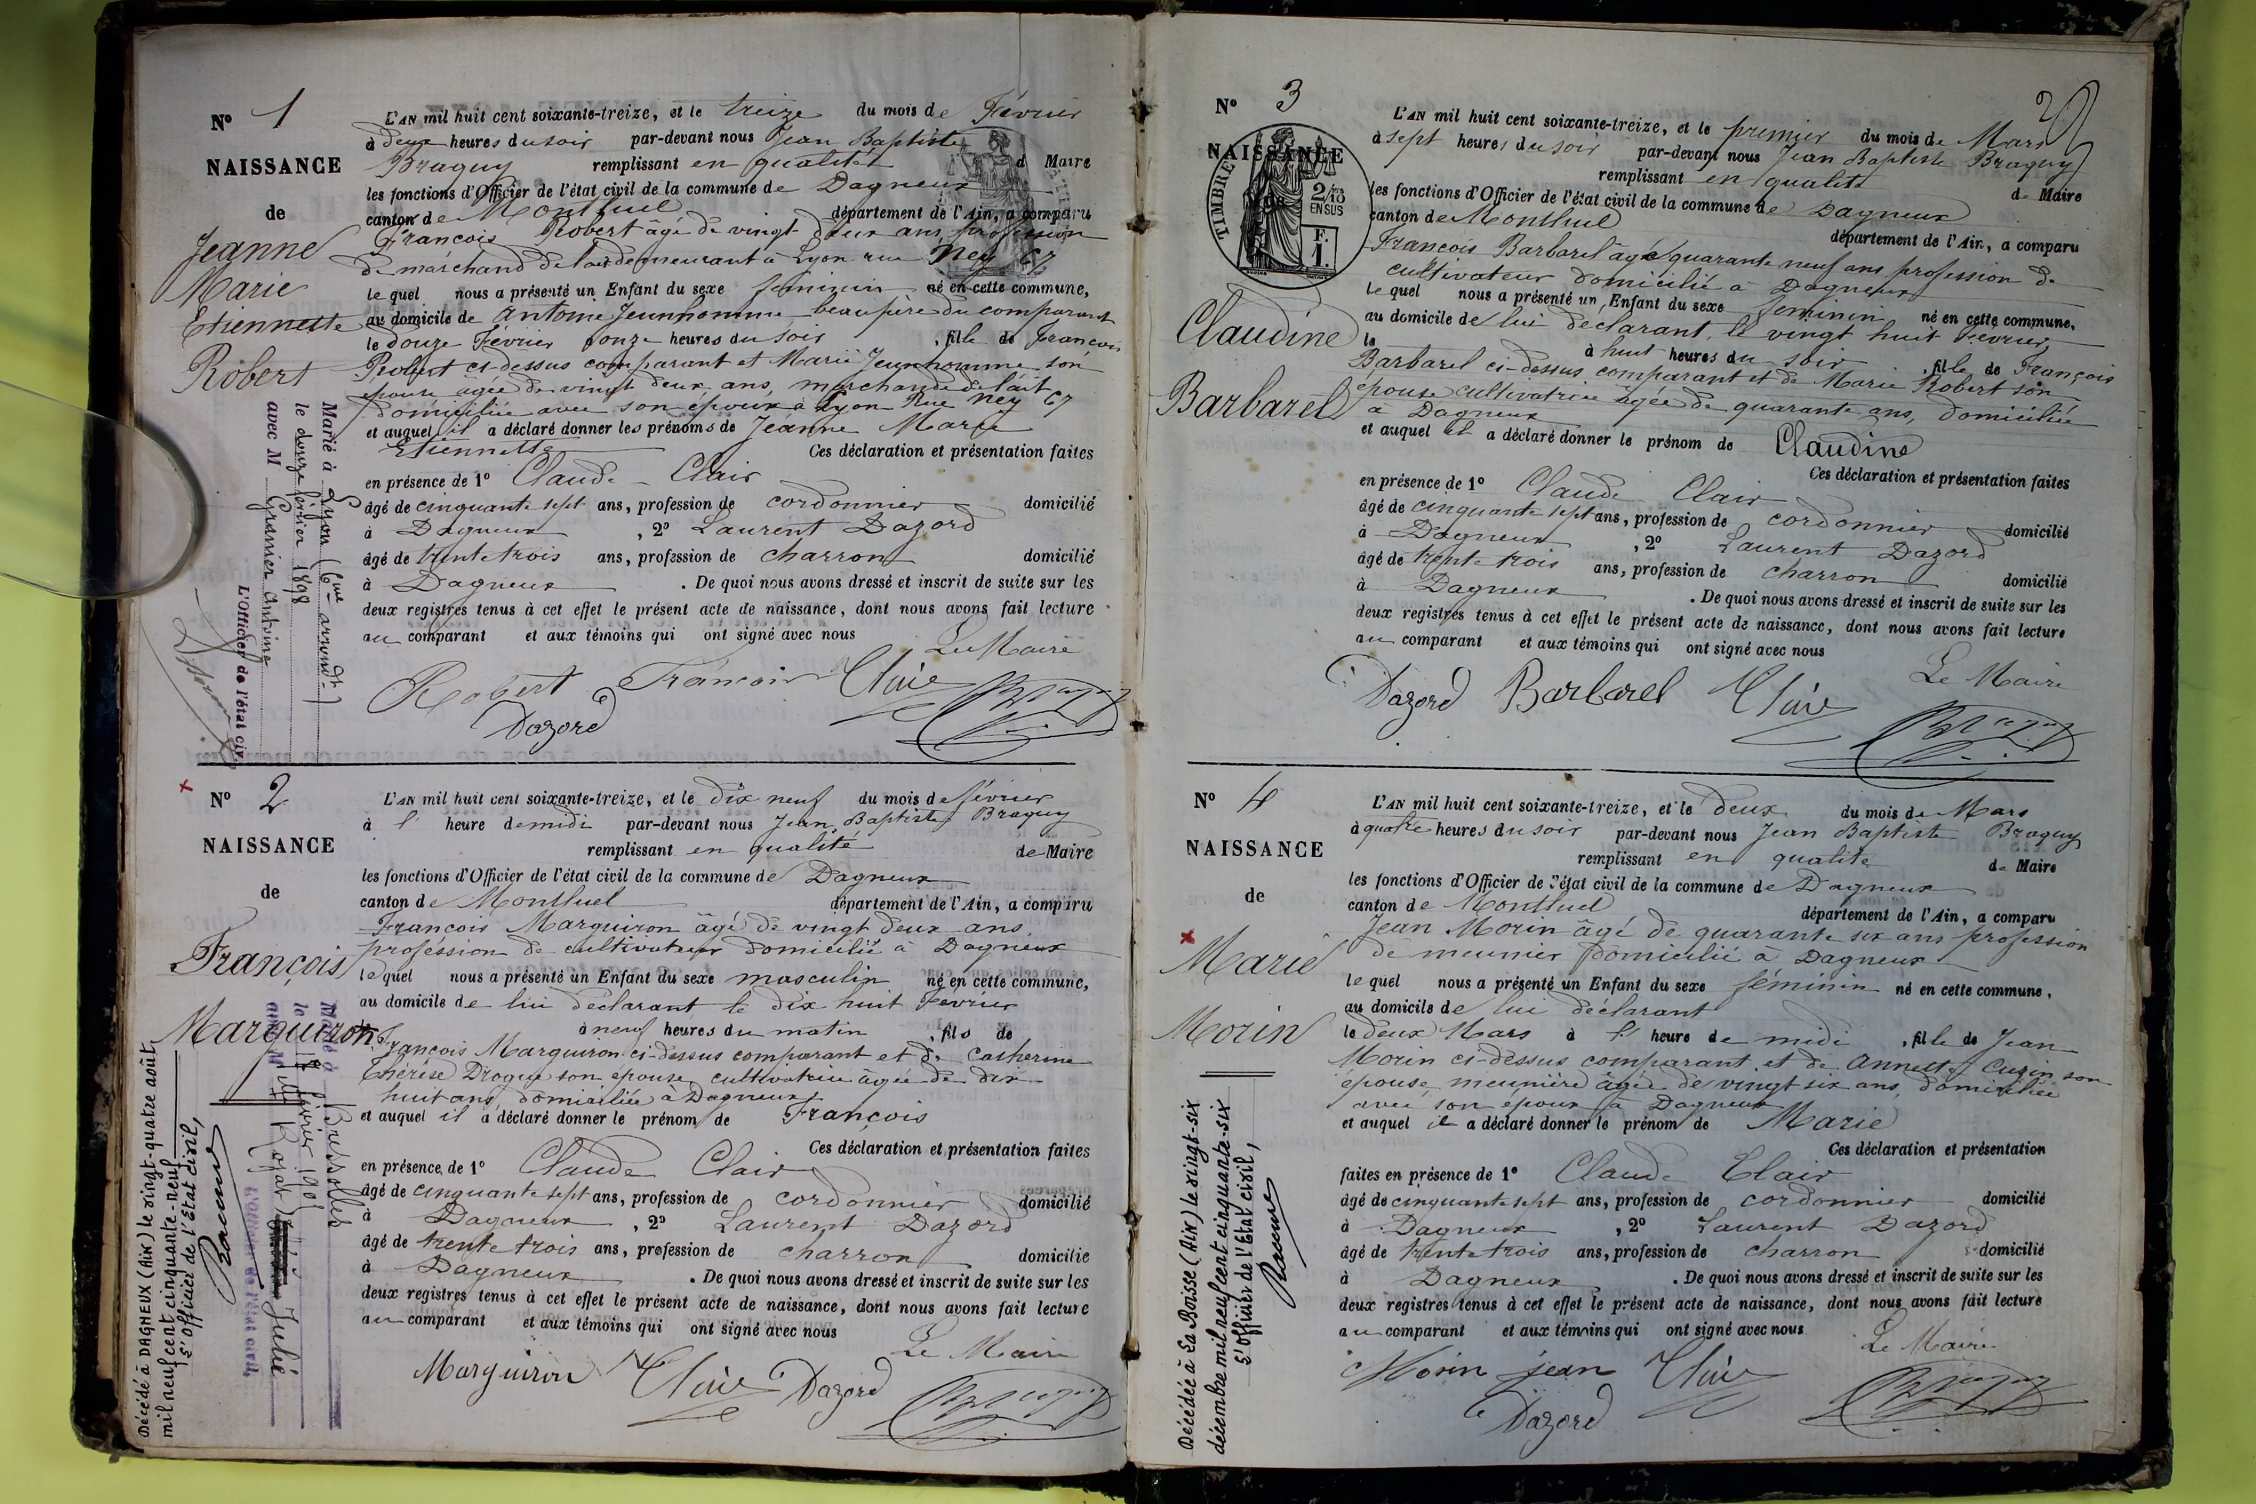 N° 1
NAISSANCE
de
Jeanne
Marie
Etiennette
Robert
Marié à Lyon (6me arrondt)
le douze février 1898
avec M Grenier Antoine
L'Officier de l'état civil
L'AN mil huit cent soixante-treize, et le treize du mois de Février
à deux heures du soir par-devant nous Jean Baptiste
Braguy remplissant en qualité d Maire
les fonctions d'Officier de l'état civil de la commune de Dagneux
canton de Montluel département de l'Ain, a comparu
François Robert âgé de vingt deux ans profession
de marchand de lait demeurant à Lyon rue Ney 67
le quel nous a présenté un Enfant du sexe féminin né en cette commune,
au domicile de Antoine Jeunhomme beau père du comparant
le douze Février onze heures du soir , fille de François
Robert ci-dessus comparant et Marie Jeunhomme son
épouse âgée de vingt deux ans, marchande de lait
domiciliée avec son époux à Lyon Rue Ney 67
et auquel il a déclaré donner les prénoms de Jeanne Marie
Etiennette Ces déclaration et présentation faites
en présence de 1° Claude Clair
âgé de cinquante sept ans, profession de cordonnier domicilié
à Dagneux , 2° Laurent Dazord
âgé de trente trois ans, profession de charron domicilié
à Dagneux . De quoi nous avons dressé et inscrit de suite sur les
deux registres tenus à cet effet le présent acte de naissance, dont nous avons fait lecture
au comparant et aux témoins qui ont signé avec nous
Le Maire
Robert François Clair Braguy
Dazord
N° 2
NAISSANCE
de
François
Marguiron
Marié à Bressolles
le février
avec Mlle Julie
L'Officier de l'état civil
Décédé à DAGNEUX (AIN) le vingt-quatre août
mil neuf cent cinquante-neuf
S/ Officier de l'État civil,
L'AN mil huit cent soixante-treize, et le dix neuf du mois de février
à l' heure de midi par-devant nous Jean Baptiste Braguy
remplissant en qualité de Maire
les fonctions d'Officier de l'état civil de la commune de Dagneux
canton de Montluel département de l'Ain, a comparu
François Marguiron âgé de vingt deux ans
profession de cultivateur domicilié à Dagneux
le quel nous a présenté un Enfant du sexe masculin né en cette commune,
au domicile de lui déclarant le dix huit Fevrier
à neuf heures du matin , fils de
François Marguiron ci-dessus comparant et de Catherine
Thérèse Drogue son epouse cultivatrice âgée de dix
huit ans domiciliée à Dagneux
et auquel il a déclaré donner le prénom de François
Ces déclaration et présentation faites
en présence de 1° Claude Clair
âgé de cinquante sept ans, profession de cordonnier domicilié
à Dagneux , 2° Laurent Dazord
âgé de trente trois ans, profession de charron domicilié
à Dagneux . De quoi nous avons dressé et inscrit de suite sur les
deux registres tenus à cet effet le présent acte de naissance, dont nous avons fait lecture
au comparant et aux témoins qui ont signé avec nous
Le Maire
Marguiron Clair Dazord Braguy
2
N° 3
NAISSANCE
de
TIMBRE
2/10 EN SUS
F. 1.
Claudine
Barbarel
L'AN mil huit cent soixante-treize, et le premier du mois de Mars
à sept heures du soir par-devant nous Jean Baptiste Braguy
remplissant en qualité de Maire
les fonctions d'Officier de l'état civil de la commune de Dagneux
canton de Montluel département de l'Ain, a comparu
François Barbarel âgé quarante neuf ans profession de
cultivateur domicilié à Dagneux
le quel nous a présenté un Enfant du sexe feminin né en cette commune,
au domicile de lui déclarant le vingt huit Fevrier
le à huit heures du soir , fille de François
Barbarel ci-dessus comparant et de Marie Robert son
épouse cultivatrice âgée de quarante ans, domiciliée
à Dagneux
et auquel il a déclaré donner le prénom de Claudine
Ces déclaration et présentation faites
en présence de 1° Claude Clair
âgé de cinquante sept ans, profession de cordonnier domicilié
à Dagneux , 2° Laurent Dazord
âgé de trente trois ans, profession de charron domicilié
à Dagneux . De quoi nous avons dressé et inscrit de suite sur les
deux registres tenus à cet effet le présent acte de naissance, dont nous avons fait lecture
au comparant et aux témoins qui ont signé avec nous
Le Maire
Dazord Barbarel Clair Braguy
N° 4
NAISSANCE
de
Marie
Morin
Décédée à La Boisse (AIN) le vingt-six
décembre mil neuf cent cinquante-six
S/ Officier de l'État civil,
L'AN mil huit cent soixante-treize, et le deux du mois de Mars
à quatre heures du soir par-devant nous Jean Baptiste Braguy
remplissant en qualité de Maire
les fonctions d'Officier de l'état civil de la commune de Dagneux
canton de Montluel département de l'Ain, a comparu
Jean Morin âgé de quarante six ans profession
de meunier domicilié à Dagneux
le quel nous a présenté un Enfant du sexe féminin né en cette commune,
au domicile de lui déclarant
le deux Mars à l' heure de midi , fille de Jean
Morin ci-dessus comparant et de Annette Cusin son
épouse, meunière âgée de vingt six ans, domiciliée
avec son epoux à Dagneux
et auquel il a déclaré donner le prénom de Marie
Ces déclaration et présentation
faites en présence de 1° Claude Clair
âgé de cinquante sept ans, profession de cordonnier domicilié
à Dagneux , 2° Laurent Dazord
âgé de trente trois ans, profession de charron domicilié
à Dagneux . De quoi nous avons dressé et inscrit de suite sur les
deux registres tenus à cet effet le présent acte de naissance, dont nous avons fait lecture
au comparant et aux témoins qui ont signé avec nous
Le Maire
Morin jean Clair Braguy
Dazord